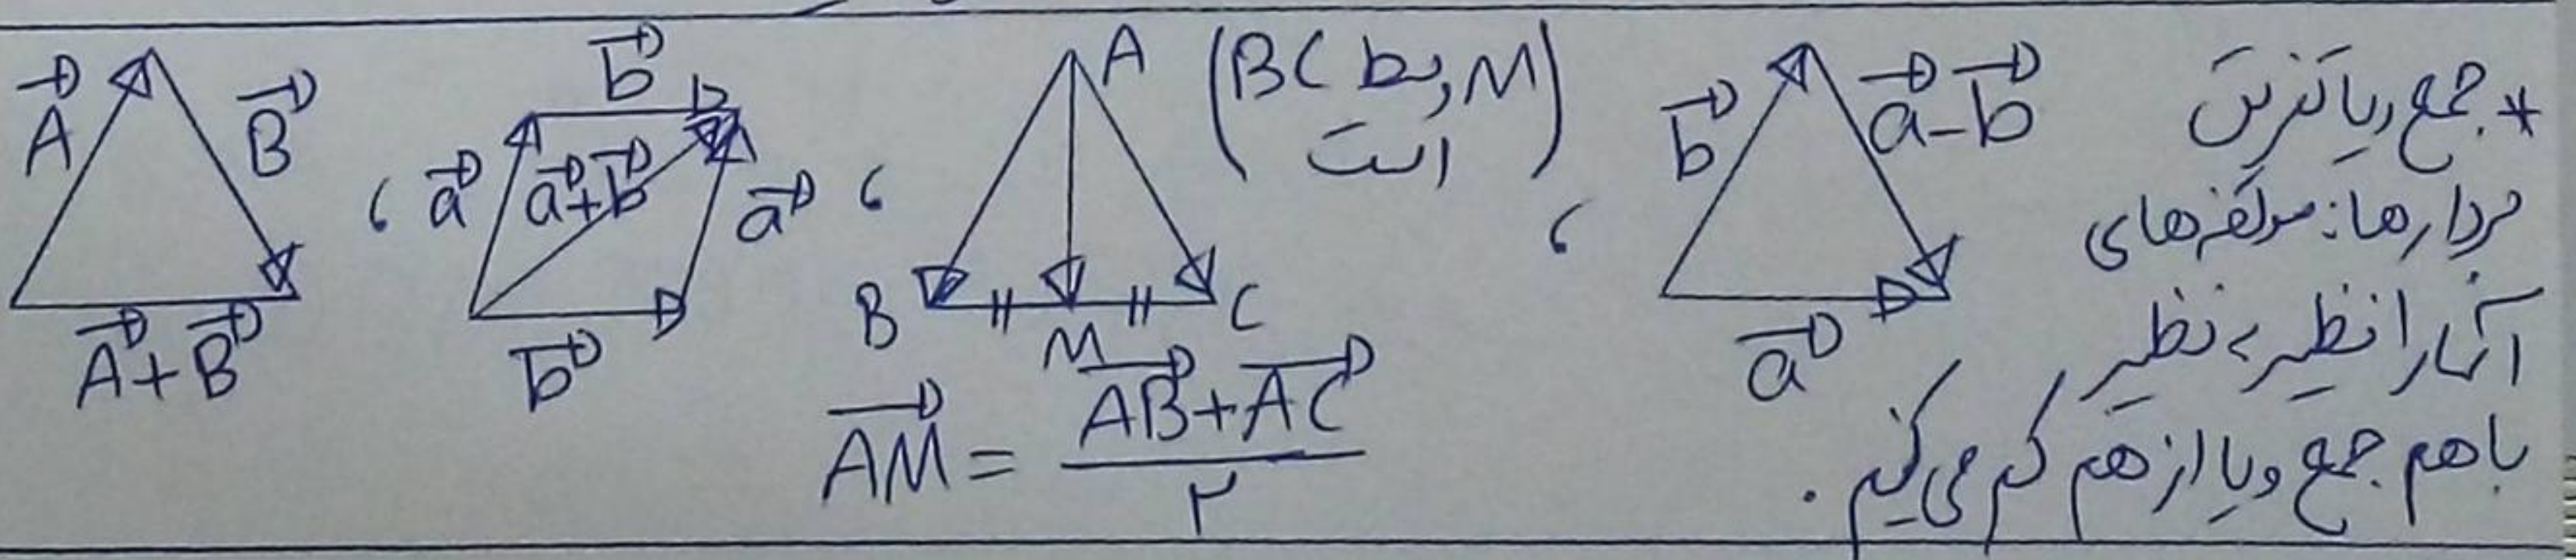 * جمع و یا تفریق
بردارها: مولفه‌های
آنها را نظیر به نظیر
با هم جمع و یا از هم کم می‌کنیم.
b⃗
a⃗-b⃗
a⃗
،
A
(M وسط BC
است)
B
M
C
AM⃗ = (AB⃗+AC⃗)/۲
،
b⃗
a⃗
a⃗+b⃗
a⃗
b⃗
،
A⃗
B⃗
A⃗+B⃗